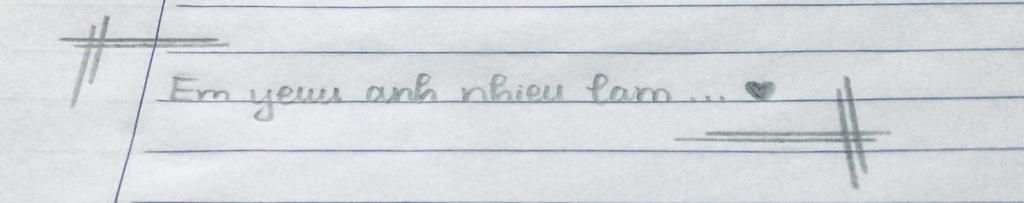 Em yeuu anh nhieu lam... ♥